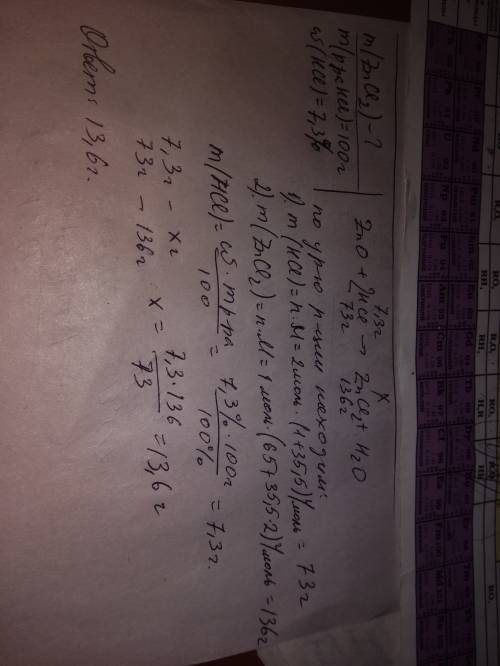 m(ZnCl₂) - ?
m(р-ра HCl) = 100г
ω(HCl) = 7,3%
7,3г x
ZnO + 2HCl → ZnCl₂ + H₂O
73г 136г
по ур-ю р-ции находим:
1). m(HCl) = n·M = 2моль·(1+35,5)г/моль = 73г
2). m(ZnCl₂) = n·M = 1 моль·(65+35,5·2)г/моль = 136г
m(HCl) = ω·mр-ра / 100 = 7,3%·100г / 100% = 7,3г.
7,3г - xг
73г - 136г x = 7,3·136 / 73 = 13,6г
Ответ: 13,6г.